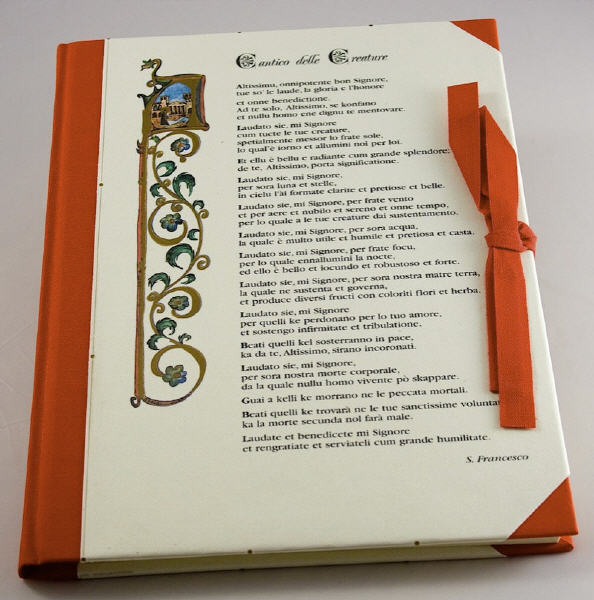 Cantico delle Creature
Altissimu, onnipotente bon Signore,
tue so' le laude, la gloria e l'honore
et onne benedictione.
Ad te solo, Altissimo, se konfano
et nullu homo ene dignu te mentovare.
Laudato sie, mi Signore
cum tucte le tue creature,
spetialmente messor lo frate sole,
lo qual'è iorno et allumini noi per loi.
Et ellu è bellu e radiante cum grande splendore:
de te, Altissimo, porta significatione.
Laudato sie, mi Signore,
per sora luna et stelle,
in cielu l'ài formate clarite et pretiose et belle.
Laudato sie, mi Signore, per frate vento
et per aere et nubilo et sereno et onne tempo,
per lo quale a le tue creature dai sustentamento.
Laudato sie, mi Signore, per sora acqua,
la quale è multo utile et humile et pretiosa et casta.
Laudato sie, mi Signore, per frate focu,
per lo quale ennallumini la nocte,
ed ello è bello et iocundo et robustoso et forte.
Laudato sie, mi Signore, per sora nostra matre terra,
la quale ne sustenta et governa,
et produce diversi fructi con coloriti flori et herba.
Laudato sie, mi Signore
per quelli ke perdonano per lo tuo amore,
et sostengo infirmitate et tribulatione.
Beati quelli kel sosterranno in pace,
ka da te, Altissimo, sirano incoronati.
Laudato sie, mi Signore,
per sora nostra morte corporale,
da la quale nullu homo vivente pò skappare.
Guai a kelli ke morrano ne le peccata mortali.
Beati quelli ke trovarà ne le tue sanctissime voluntat
ka la morte secunda nol farà male.
Laudate et benedicete mi Signore
et rengratiate et serviateli cum grande humilitate.
S. Francesco